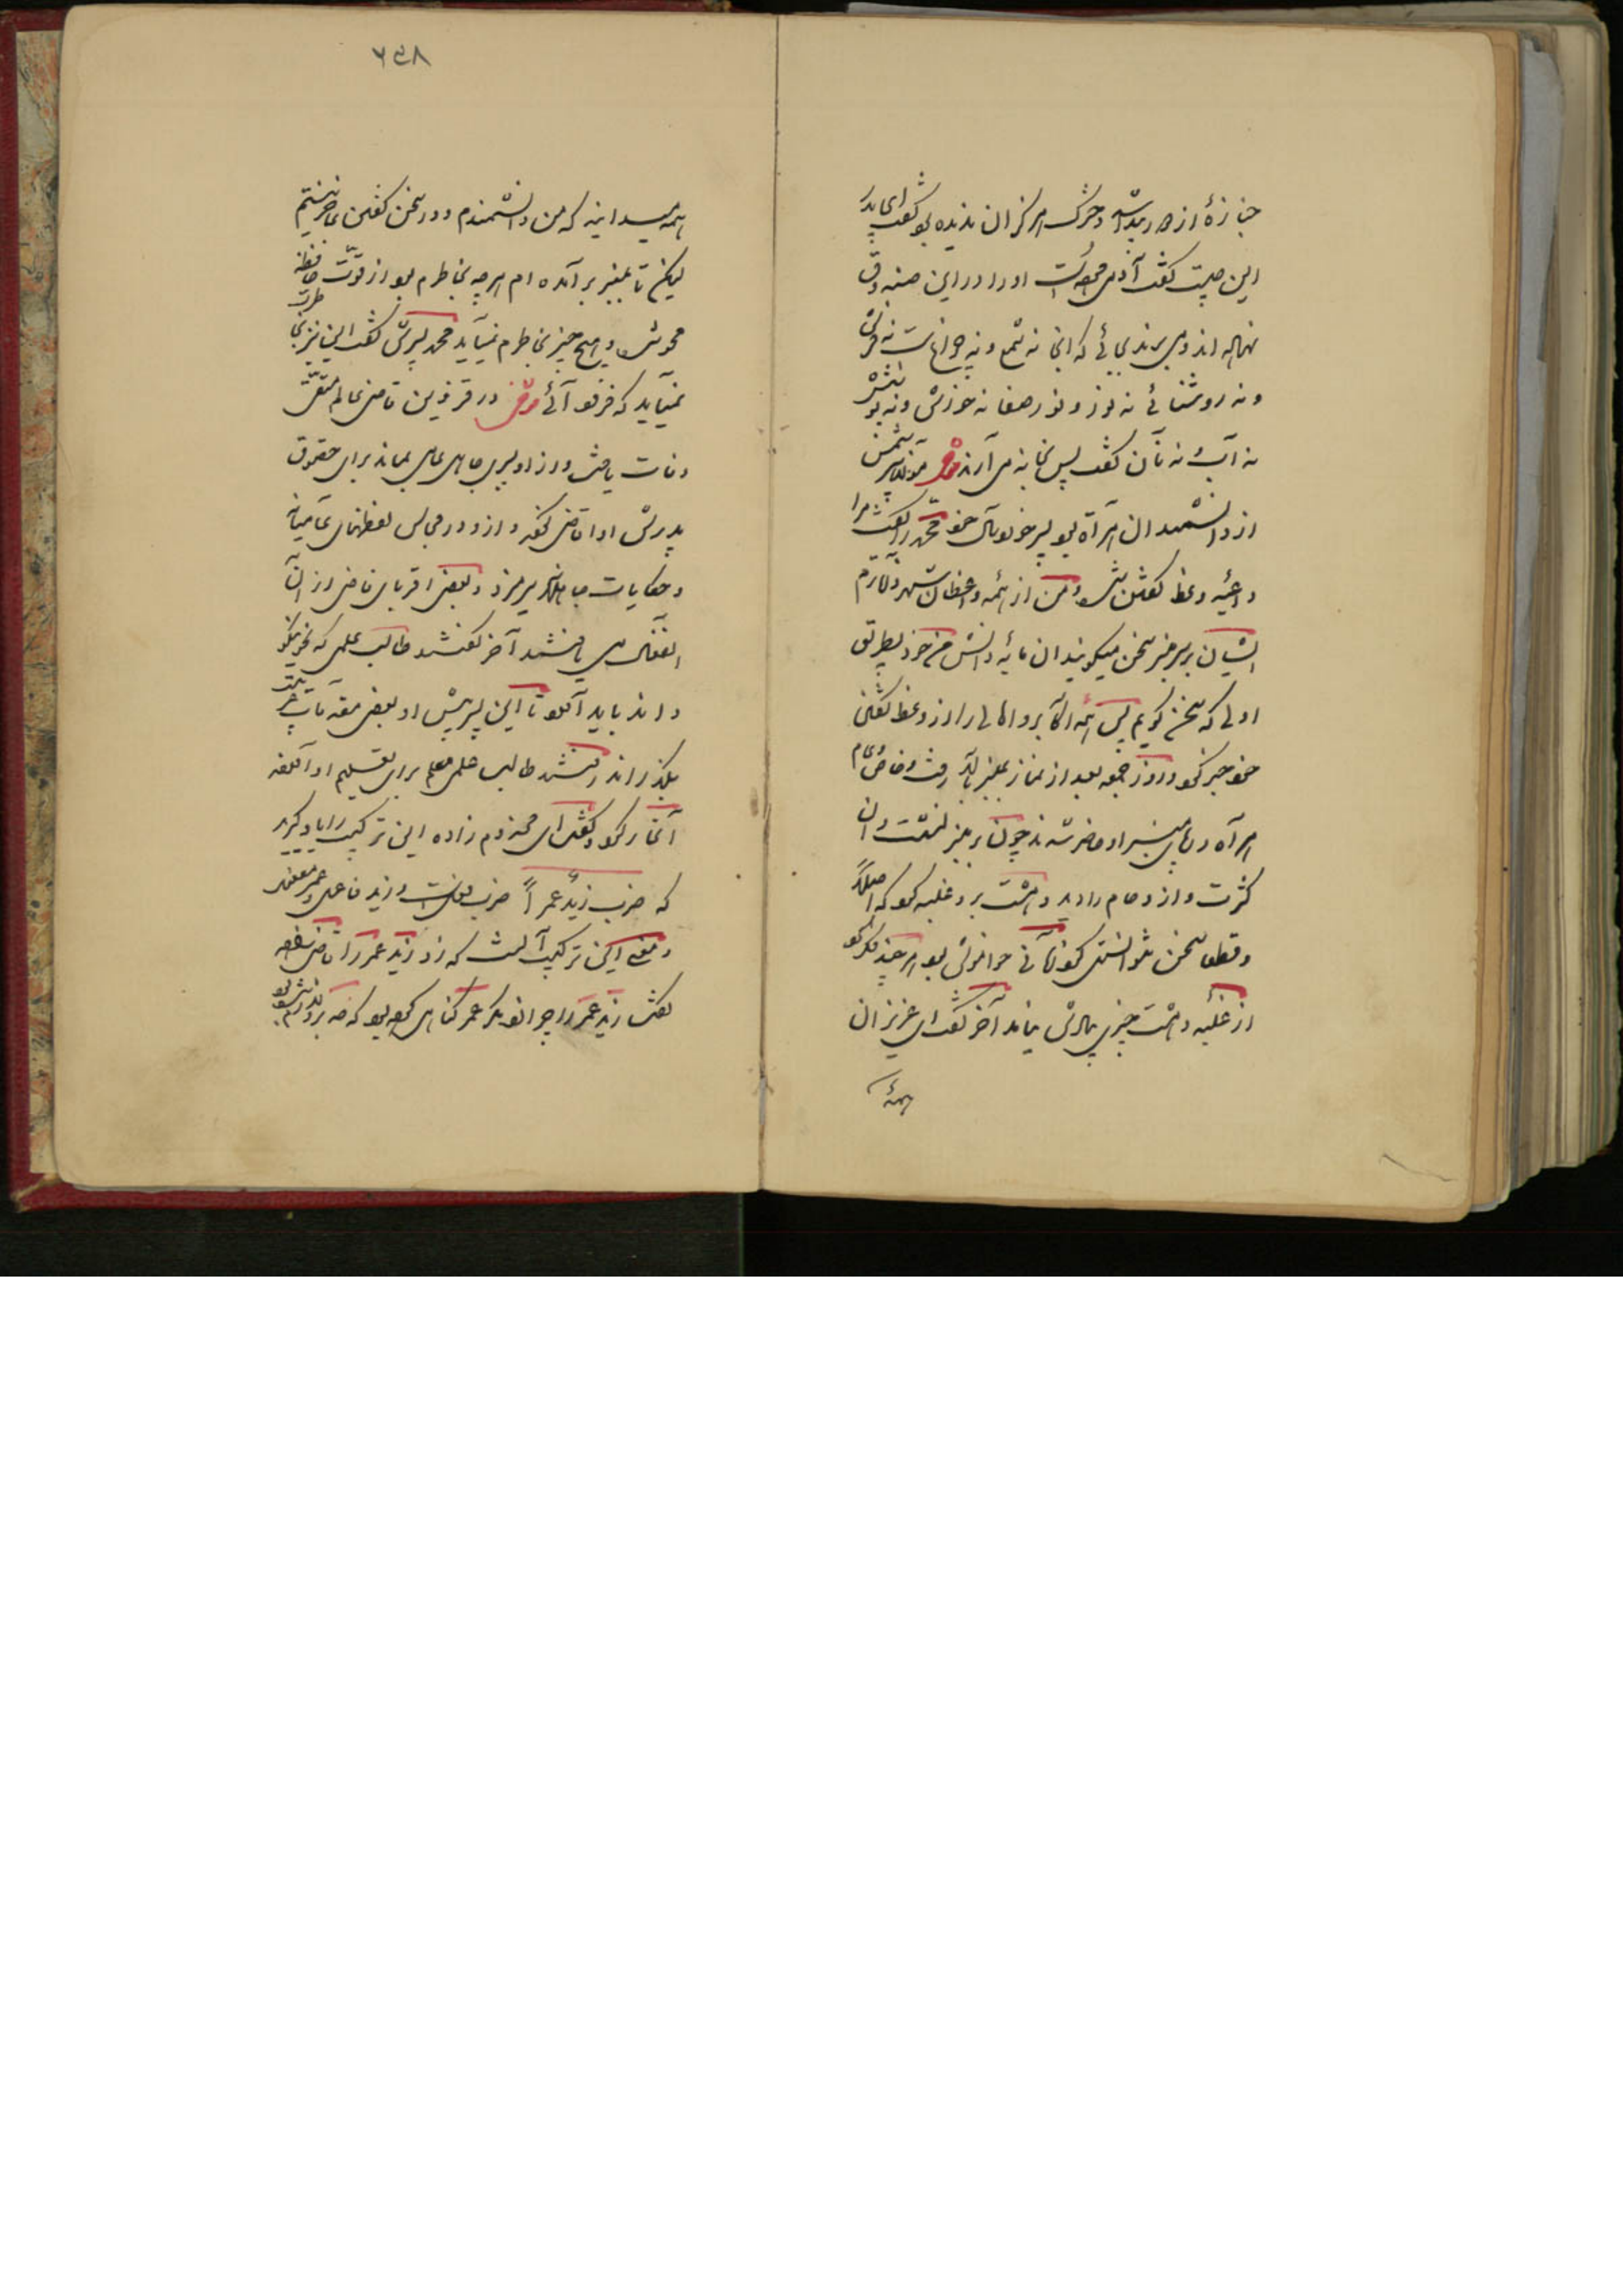 جنازهٔ از در پیدا شد و خترک هرگز آن ندیده بود گفت ای پدر
این چیست گفت آدمی مرده است او را در این صندوق
نهاده اند و می برند بجائی که آنجا نه شمع و نه چراغ است نه فرش
و نه روشنائی نه نور و نور صفا نه خورش و نه پوشش
نه آب و نه نان گفت پس بخانهٔ ما می آرند
از دانشمندان هراة بود پسر خود محمد را گفت مرا
داعیه وعظ گفتن شد و من از ائمه و واعظان شهر
ایشان بر سر منبر سخن میگویند آن مایه دانش
اولی که سخن گویم پس ائمه و اکابر و اهالی را از وعظ گفتن
خود خبر کرد و روز جمعه بعد از نماز بمنبر بالا رفت و خاص و عام
هراة در پای منبر او حاضر شدند چون بر منبر نشست و آن
کثرت و ازدحام را دید دهشت برو غلبه کرد که اصلاً
و قطعاً سخن نتوانست کرد زمانی خاموش بود هر چند فکر کرد
از غلبه دهشت چیزی بیادش نیامد آخر گفت ای عزیزان
همه
۲۵۸
همه میدانید که من دانشمندم و در سخن گفتن عاجز نیستم
لیکن تا بمنبر برآمده ام هر چه بخاطرم بود از قوت حافظه
محو شد و هیچ چیز بخاطرم نمیآید محمد پسرش گفت این نیز بخاطرت
نمیآید که فرود آئی در قزوین قاضی عالم متقی
وفات یافت و از او پسری جاهل عامی بماند برای حقوق
پدرش او را قاضی کردند و ازو در مجالس لفظهای عامیانه
و حکایات جاهلانه سر میزد و بعضی اقربای قاضی از آن
انفعال می یافتند آخر گفتند طالب علمی که نحو نیکو
داند باید آورد تا این پسر پیش او بعضی مقدمات
بگذراند رفتند طالب علمی معلم برای تعلیم او آوردند
آغاز کرد و گفت ای مخدوم زاده این ترکیب را یاد گیرید
که ضرب زیدٌ عمراً ضرب فعل است و زید فاعل و عمر مفعول
و معنی این ترکیب آنست که زد زید عمر را قاضی زاده
گفت زید عمر را چرا زد مگر عمر گناهی کرده بود که